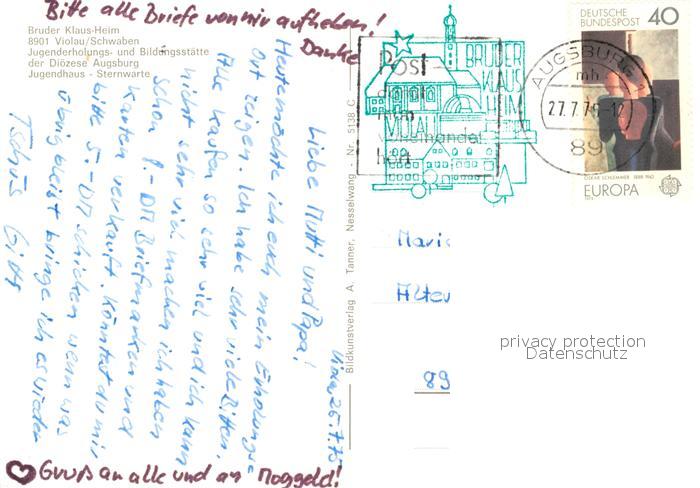 Bitte alle Briefe von mir aufheben!
Danke
Bruder Klaus-Heim
8901 Violau/Schwaben
Jugenderholungs- und Bildungsstätte
der Diözese Augsburg
Jugendhaus - Sternwarte
Violau 25.7.75
Liebe Mutti und Papa!
Heute möchte ich euch mein Erholungs
ort zeigen. Ich habe sehr viele Bitten.
Alle kaufen so sehr viel und ich kann
nicht sehr viel machen ich habe
schon 8.-DM Briefmarken und
Karten verkauft. Könntest du mir
bitte 5.-DM schicken wenn was
übrig bleibt bringe ich es wieder
Tschüs Gitti
♥ Gruß an alle und an Moggeld!
Bildkunstverlag A. Tanner, Nesselwang - Nr. 5138 C
Post
voneinander
hört
BRUDER
KLAUS
HEIM
VIOLAU
AUGSBURG
mh
27.7.75-12
89
DEUTSCHE
BUNDESPOST
40
OSKAR SCHLEMMER 1888-1943
EUROPA
1975
Marie
Alten
89
privacy protection
Datenschutz